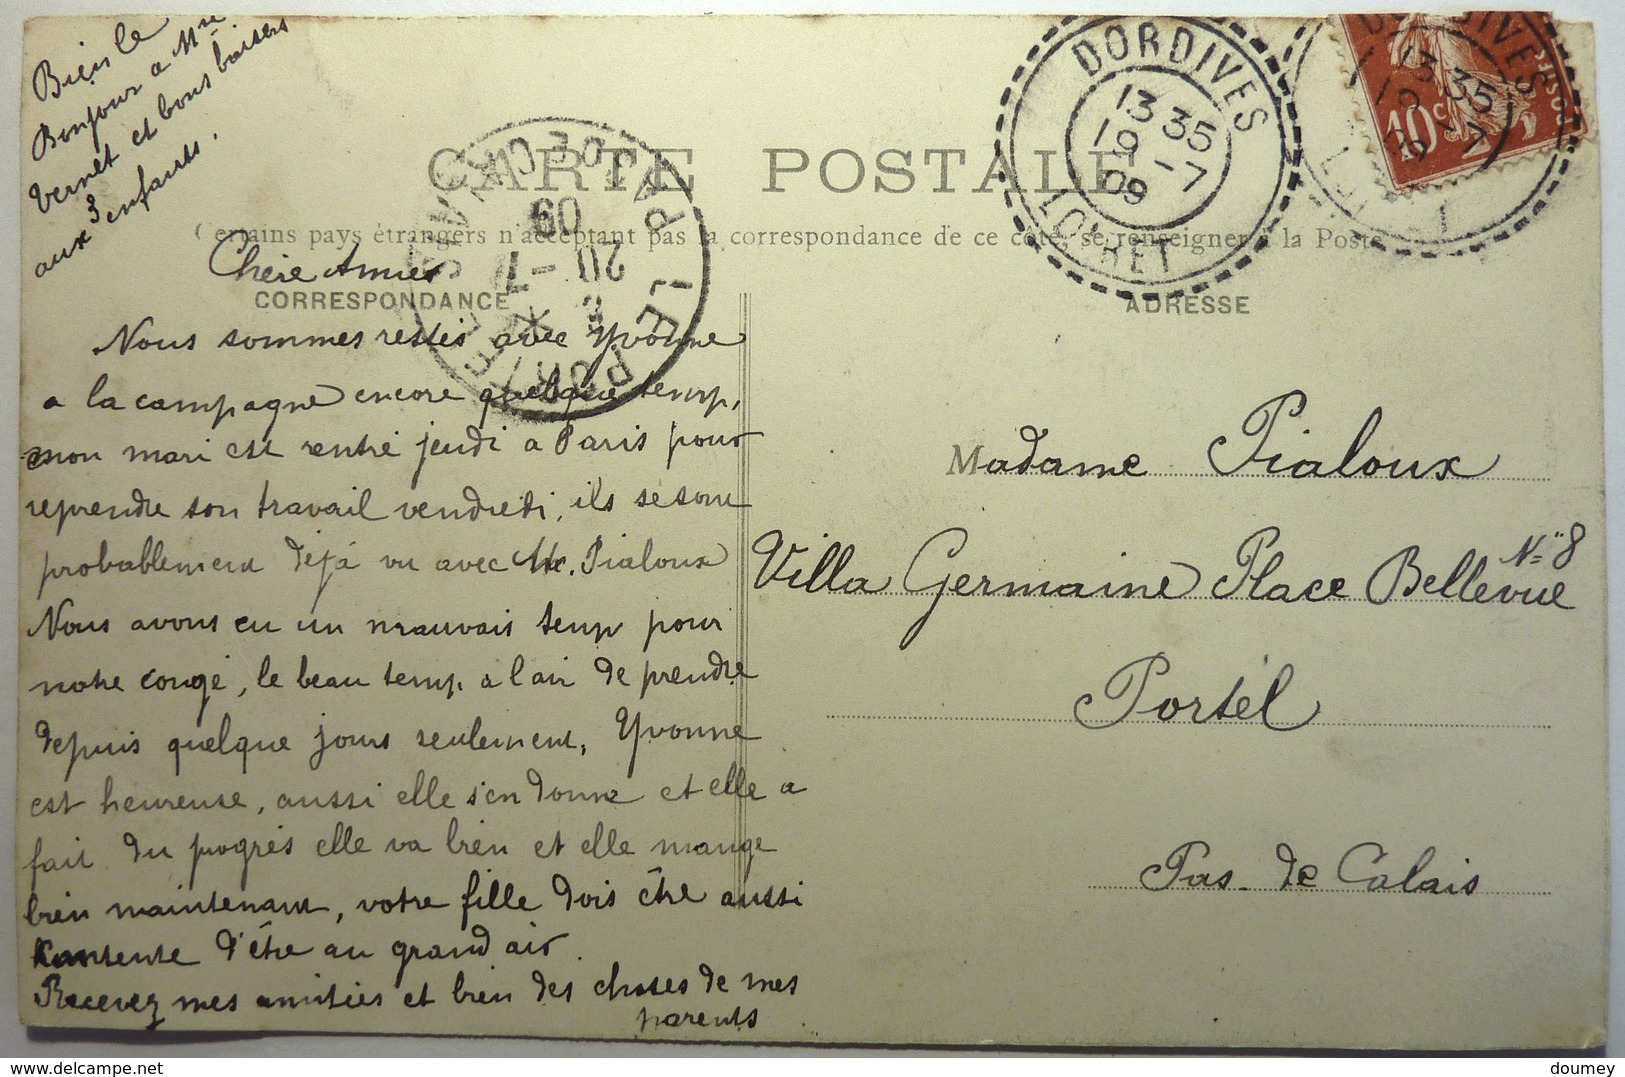 Bien le
Bonjour a Mme
Vernet et bons baisers
aux 3 enfants.
CARTE POSTALE
Certains pays étrangers n'acceptant pas la correspondance de ce côté, se renseigner à la Poste
CORRESPONDANCE
ADRESSE
DORDIVES
13 35
19 -7
09
LOIRET
DORDIVES
13 35
19 -7
09
10c
POSTES
LE PORTEL
PAS DE CALAIS
20 -7
09
Chère Amies
Nous sommes restés avec Yvonne
a la campagne encore quelque temp,
mon mari est rentré jeudi a Paris pour
reprendre son travail vendredi, ils se sont
probablement déjà vu avec Mr. Pialoux
Nous avons eu un mauvais temp pour
notre congé, le beau temp a l'air de prendre
depuis quelque jours seulement, Yvonne
est heureuse, aussi elle s'en donne et elle a
fait du progrés elle va bien et elle mange
bien maintenant, votre fille dois être aussi
contente d'être au grand air.
Recevez mes amitiés et bien des choses de mes
parents
Madame Pialoux
Villa Germaine Place Bellevue No 8
Portel
Pas de Calais
doumey